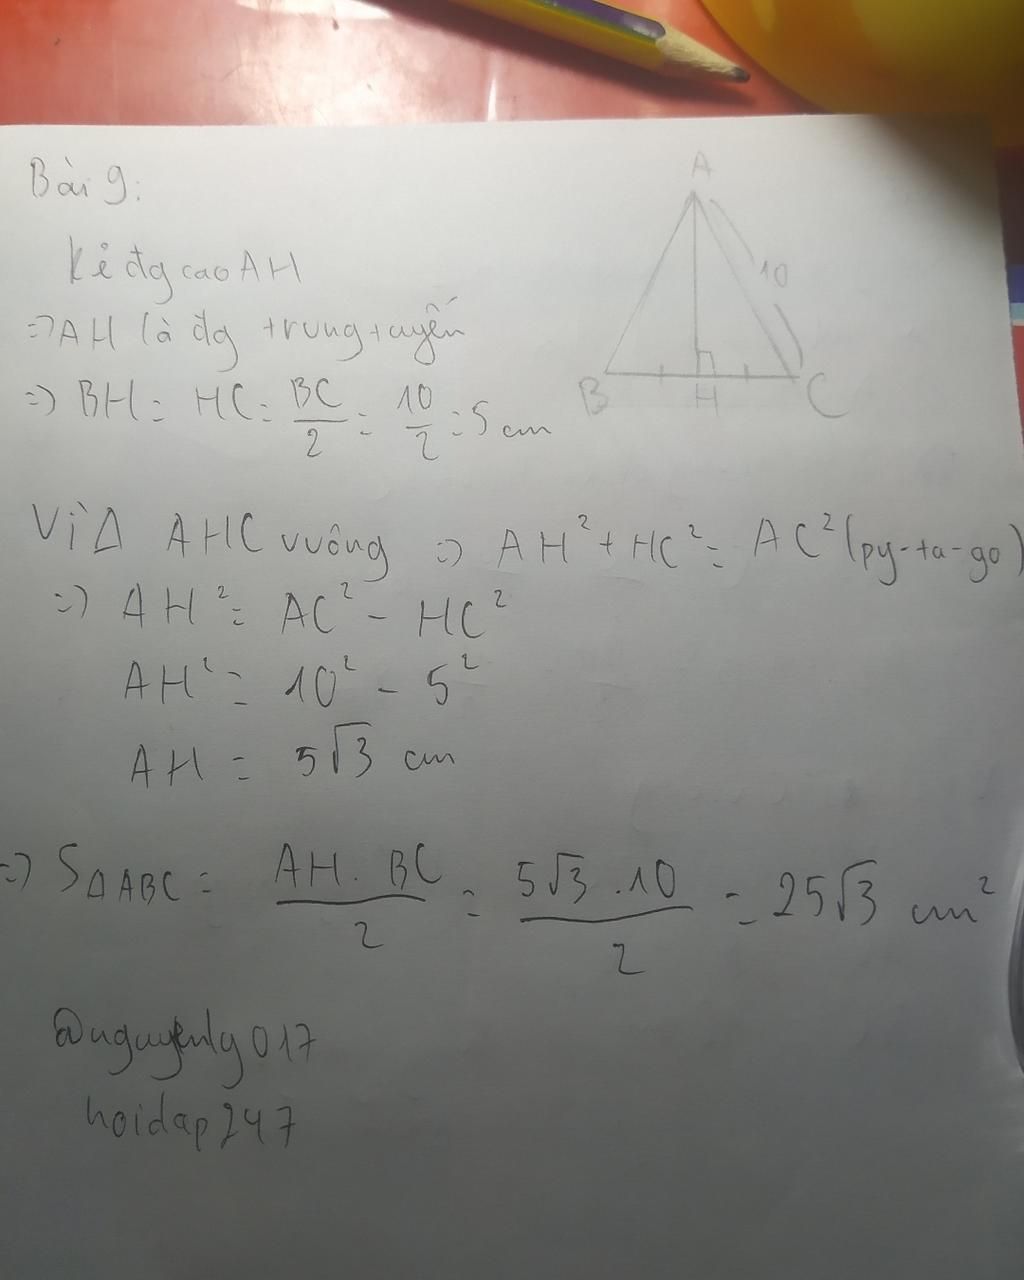 Bài 9:
A
10
B
H
C
Kẻ đg cao AH
=> AH là đg trung tuyến
=> BH = HC = BC/2 = 10/2 = 5 cm
Vì Δ AHC vuông => AH² + HC² = AC² (py-ta-go)
=> AH² = AC² - HC²
AH² = 10² - 5²
AH = 5√3 cm
=> SΔABC = AH . BC/2 = 5√3 . 10/2 = 25√3 cm²
@nguyenly017
hoidap247